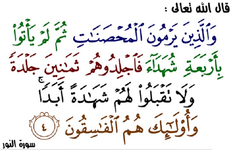 قال الله تعالى :
وَالَّذِينَ يَرْمُونَ الْمُحْصَنَاتِ ثُمَّ لَمْ يَأْتُوا
بِأَرْبَعَةِ شُهَدَاءَ فَاجْلِدُوهُمْ ثَمَانِينَ جَلْدَةً
وَلَا تَقْبَلُوا لَهُمْ شَهَادَةً أَبَدًا ۚ
وَأُولَٰئِكَ هُمُ الْفَاسِقُونَ ٤
سورة النور